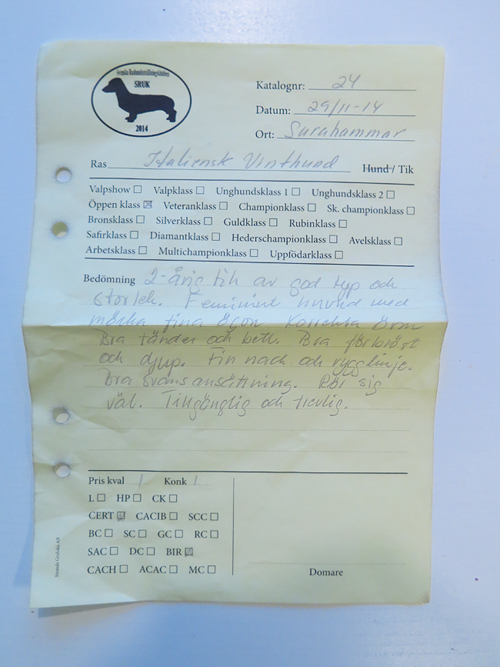 SRUK
2014
Katalognr: 24
Datum: 29/11-14
Ort: Surahammar
Ras Italiensk Vinthund Hund / Tik
Valpshow ☐ Valpklass ☐ Unghundsklass 1 ☐ Unghundsklass 2 ☐
Öppen klass ☒ Veteranklass ☐ Championklass ☐ Sk. championklass ☐
Bronsklass ☐ Silverklass ☐ Guldklass ☐ Rubinklass ☐
Safirklass ☐ Diamantklass ☐ Hederschampionklass ☐ Avelsklass ☐
Arbetsklass ☐ Multichampionklass ☐ Uppfödarklass ☐
Bedömning 2-årig tik av god typ och
storlek. Feminint huvud med
mörka fina ögon Korrekta öron
Bra tänder och bett. Bra förbröst
och djup. Fin nacke och rygglinje.
Bra svansansättning. Rör sig
väl. Tillgänglig och trevlig.
Pris kval 1 Konk 1
L ☐ HP ☐ CK ☐
CERT ☒ CACIB ☐ SCC ☐
BC ☐ SC ☐ GC ☐ RC ☐
SAC ☐ DC ☐ BIR ☒
CACH ☐ ACAC ☐ MC ☐
Domare